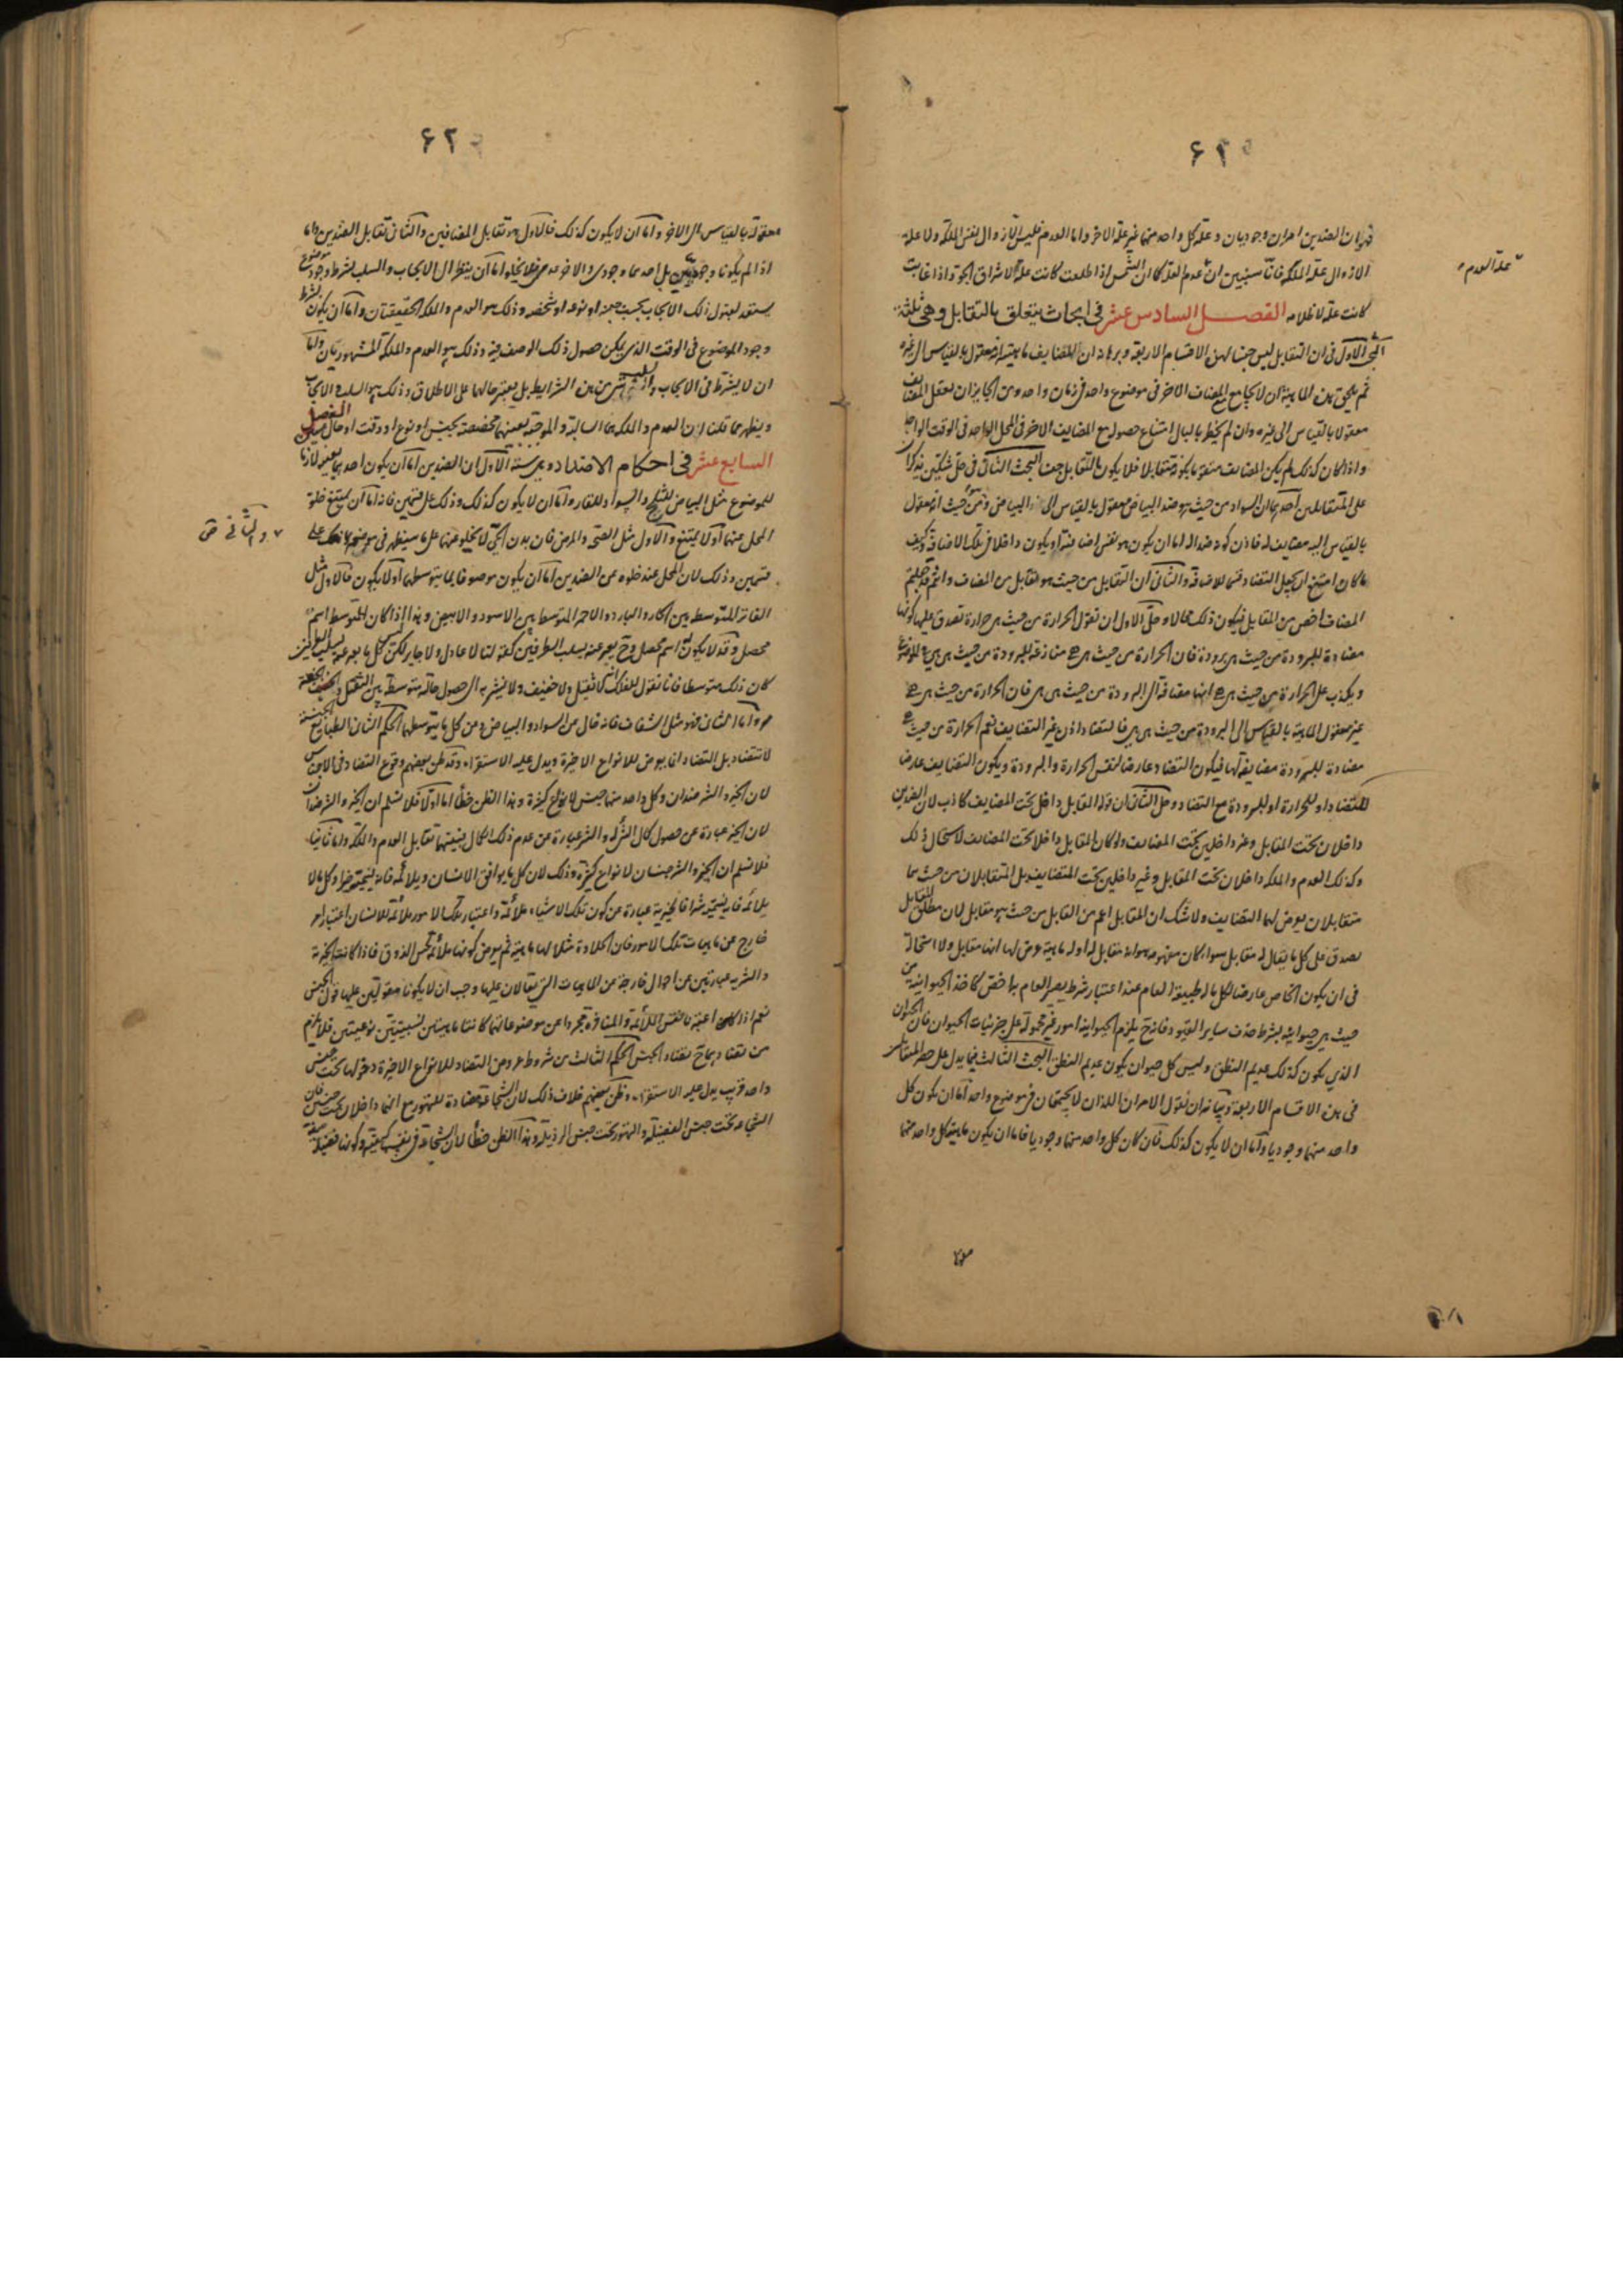 ۶۲
فهو ان الضدين امران وجوديان وعلة كل واحد منهما غير علة الاخر واما العدم فليس الا زوال نفس الملكة ولا علة
الا زوال علة الملكة فانا سنبين ان عدم العلة كما ان الشمس اذا طلعت كانت علة لاشراق الجو واذا غابت
علة العدم
كانت علة لاظلامه الفصل السادس عشر فى ابحاث يتعلق بالتقابل وهى ثلثة
البحث الاول فى ان التقابل ليس جنسا لهذه الاقسام الاربعة وبرهانه ان المضايف ماهيته انه معقول بالقياس الى غيره
ثم يلحق هذه الماهية ان لا يجامع المضاف الاخر فى موضوع واحد فى زمان واحد ومن الجايز ان يعقل المضايف
معقولا بالقياس الى غيره وان لم يخطر بالبال امتناع حصوله مع المضايف الاخر فى المحل الواحد فى الوقت الواحد
واذا كان كذلك لم يكن المضايف متقوما بكونه متقابلا فلا يكون التقابل جنسا البحث الثانى فى حل شكين يذكران
على المتقابلين احدهما ان السواد من حيث هو ضد البياض معقول بالقياس الى البياض ومن حيث انه معقول
بالقياس اليه مضايف له فاذن كونه ضدا له اما ان يكون هو نفس اضافته او يكون داخلا فى تلك الاضافة وكيف
ما كان امتنع ان يجعل التضاد قسيما للاضافة والثانى ان التقابل من حيث هو تقابل من المضاف وانتم قد جعلتم
المضاف اخص من التقابل فيكون ذلك محالا وحل الاول ان نقول الحرارة من حيث هى حرارة تصدق عليها كونها
مضادة للبرودة من حيث هى برودة فان الحرارة من حيث هى هى منازعة للبرودة من حيث هى هى على الموضوع
ويكذب على الحرارة من حيث هى هى انها مضافة الى البرودة من حيث هى هى فان الحرارة من حيث هى هى
غير معقول الماهية بالقياس الى البرودة من حيث هى هى فالتضاد اذن غير التضايف نعم الحرارة من حيث هى
مضادة للبرودة مضايفة لها فيكون التضاد عارضا لنفس الحرارة والبرودة ويكون التضايف عارضا
للتضاد او للحرارة او للبرودة مع التضاد وحل الثانى ان قوله التقابل داخل تحت المضايف كاذب لان الضدين
داخلان تحت التقابل وغير داخلين تحت المضايف ولو كان التقابل داخلا تحت المضايف لاستحال ذلك
وكذلك العدم والملكة داخلان تحت التقابل وغير داخلين تحت المتضايف بل المتقابلان من حيث هما
متقابلان يعرض لهما التضايف ولا شك ان المقابل اعم من التقابل من حيث هو مقابل لان مطلق المقابل
يصدق على كل ما يقال له مقابل سواء كان مفهومه هو انه مقابل له او له ماهية عرض لها انها مقابل ولا استحالة
فى ان يكون الخاص عارضا لكل ما له طبيعة العام عند اعتبار شرط يصير العام به اخص كاخذ الحيوانية من
حيث هى حيوانية بشرط حذف ساير القيود فانه ح يلزم الحيوانية امور غير محمولة على جزئيات الحيوان فان الحيوان
الذى يكون كذلك عديم النطق وليس كل حيوان يكون عديم النطق البحث الثالث فيما يدل على حصر المتقابلين
فى هذه الاقسام الاربعة وبيانه ان نقول الامران اللذان لا يجتمعان فى موضوع واحد اما ان يكون كل
واحد منهما وجوديا واما ان لا يكون كذلك فان كان كل واحد منهما وجوديا فاما ان يكون ماهية كل واحد منهما
۶۲
معقولة بالقياس الى الاخر واما ان لا يكون كذلك فالاول هو تقابل المضافين والثانى تقابل الضدين واما
اذا لم يكونا وجوديين بل احدهما وجودى والاخر عدمى فلا يخلو اما ان ينظر الى الايجاب والسلب بشرط وجود موضوع
يستعد لقبول ذلك الايجاب بحسب جنسه او نوعه او شخصه وذلك هو العدم والملكة الحقيقتان واما ان يكون بشرط
وجود الموضوع فى الوقت الذى يمكن حصول ذلك الوصف فيه وذلك هو العدم والملكة المشهوريان واما
ان لا يشترط فى الايجاب والسلب شى من هذه الشرايط بل يعتبر حالهما على الاطلاق وذلك هو السلب والايجاب
ويظهر مما قلنا ان العدم والملكة هما السالبة والموجبة بعينهما مخصصة بجنس او نوع او وقت او حال معين الفصل
السابع عشر فى احكام الاضداد وهى ستة الاول ان الضدين اما ان يكون احدهما بعينه لازما
للموضوع مثل البياض للثلج والسواد للقار واما ان لا يكون كذلك وذلك على قسمين فانه اما ان يمتنع خلو
المحل عنهما او لا يمتنع والاول مثل الصحة والمرض فان بدن الحى لا يخلو عنهما على ما سيظهر فى موضعه على
والثانى
قسمين وذلك لان المحل عند خلوه عن الضدين اما ان يكون موصوفا بما يتوسطهما او لا يكون فالاول مثل
الفاتر المتوسط بين الحار والبارد والاحمر المتوسط بين الاسود والابيض وهذا اذا كان للمتوسط اسم
محصل وقد لا يكون له اسم محصل وح يعبر عنه بسلب الطرفين كقولنا لا عادل ولا جاير لكن ليس كل ما يعبر عنه بسلب الطرفين
كان ذلك متوسطا فانا نقول للفلك انه لا ثقيل ولا خفيف ولا نشير به الى حصول حالة متوسطة بين الثقل والخفة
واما الثانى فهو مثل الشفاف فانه خال من السواد والبياض وعن كل ما يتوسطهما الحكم الثانى الطبايع الجنسية
لا تتضاد بل التضاد انما يعرض للانواع الاخيرة ويدل عليه الاستقراء وقد ظن بعضهم وقوع التضاد فى الاجناس
لان الخير والشر ضدان وكل واحد منهما جنس لانواع كثيرة وهذا الظن خطأ اما اولا فلا نسلم ان الخير والشر ضدان
لان الخير عبارة عن حصول كمال الشئ له والشر عبارة عن عدم ذلك الكمال فبينهما تقابل العدم والملكة واما ثانيا
فلا نسلم ان الخير والشر جنسان لانواع كثيرة وذلك لان كل ما يوافق الانسان ويلائمه فانه يسميه خيرا وكل ما لا
يلائمه فانه يسميه شرا فالخيرية عبارة عن كون تلك الاشياء ملائمة واعتبار تلك الامور ملائمة للانسان اعتبار
خارج عن ماهيات تلك الامور فان الحلاوة مثلا لها ماهية ثم يعرض كونها ملائمة لحس الذوق فاذا كانت الخيرية
والشرية عبارتين عن احوال خارجة عن الماهيات التى يقالان عليها وجب ان لا يكونا مقولتين عليها قول الجنس
نعم اذا اعتبر نفس الملائمة والمنافرة مجردا عن موضوعاتهما كانتا ماهيتين نسبيتين نوعيتين فلا يلزم
من تضادهما ح تضاد الجنس الحكم الثالث من شروط عروض التضاد للانواع الاخيرة دخولها تحت جنس
واحد قريب يدل عليه الاستقراء وظن بعضهم خلاف ذلك لان الشجاعة مضادة للتهور مع انهما داخلان تحت جنسين فان
الشجاعة تحت جنس الفضيلة والتهور تحت جنس الرذيلة وهذا الظن خطأ لان الشجاعة فى نفسها كيفية وكونها فضيلة